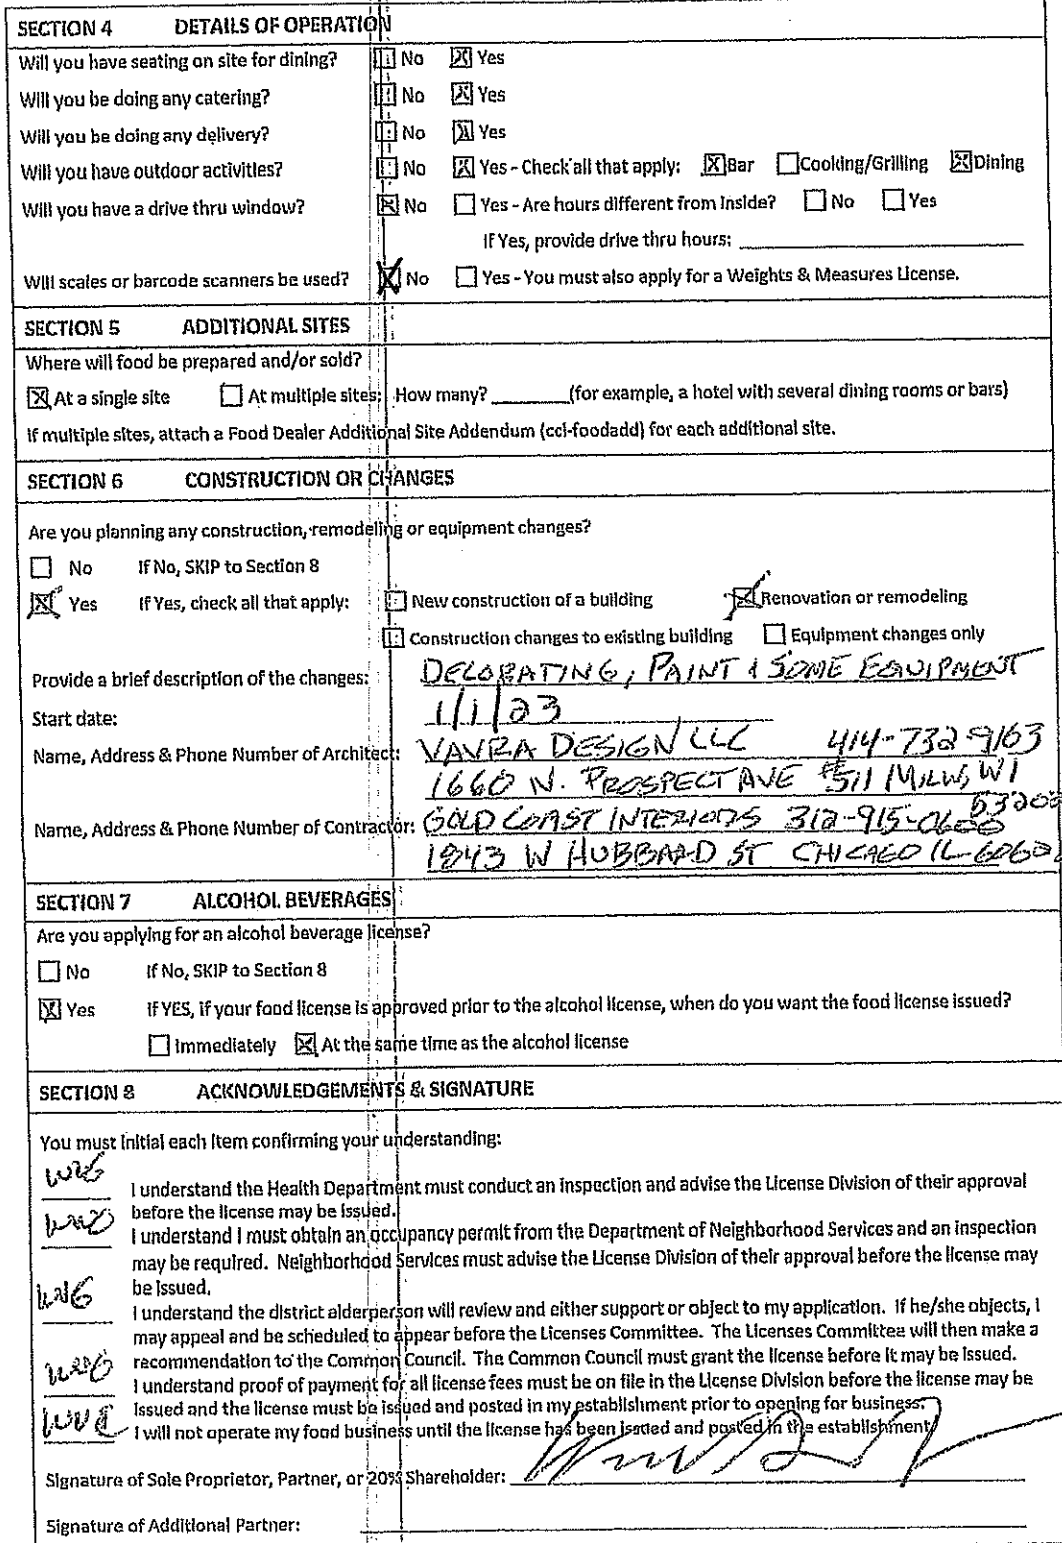 SECTION 4 DETAILS OF OPERATION
Will you have seating on site for dining? No Yes
Will you be doing any catering? No Yes
Will you be doing any delivery? No Yes
Will you have outdoor activities? No Yes - Check all that apply: Bar Cooking/Grilling Dining
Will you have a drive thru window? No Yes - Are hours different from inside? No Yes
If Yes, provide drive thru hours:
Will scales or barcode scanners be used? No Yes - You must also apply for a Weights & Measures License.
SECTION 5 ADDITIONAL SITES
Where will food be prepared and/or sold?
At a single site At multiple sites; How many? (for example, a hotel with several dining rooms or bars)
If multiple sites, attach a Food Dealer Additional Site Addendum (ccl-foodadd) for each additional site.
SECTION 6 CONSTRUCTION OR CHANGES
Are you planning any construction, remodeling or equipment changes?
No If No, SKIP to Section 8
Yes If Yes, check all that apply: New construction of a building Renovation or remodeling
Construction changes to existing building Equipment changes only
Provide a brief description of the changes: DECORATING, PAINT & SOME EQUIPMENT
Start date: 1/1/23
Name, Address & Phone Number of Architect: VAVRA DESIGN LLC 414-732-9163
1660 N. PROSPECT AVE #511 MILW, WI
Name, Address & Phone Number of Contractor: GOLD COAST INTERIORS 312-915-
1843 W HUBBARD ST CHICAGO IL
SECTION 7 ALCOHOL BEVERAGES
Are you applying for an alcohol beverage license?
No If No, SKIP to Section 8
Yes If YES, if your food license is approved prior to the alcohol license, when do you want the food license issued?
Immediately At the same time as the alcohol license
SECTION 8 ACKNOWLEDGEMENTS & SIGNATURE
You must initial each item confirming your understanding:
I understand the Health Department must conduct an inspection and advise the License Division of their approval
before the license may be issued.
I understand I must obtain an occupancy permit from the Department of Neighborhood Services and an inspection
may be required. Neighborhood Services must advise the License Division of their approval before the license may
be issued.
I understand the district alderperson will review and either support or object to my application. If he/she objects, I
may appeal and be scheduled to appear before the Licenses Committee. The Licenses Committee will then make a
recommendation to the Common Council. The Common Council must grant the license before it may be issued.
I understand proof of payment for all license fees must be on file in the License Division before the license may be
issued and the license must be issued and posted in my establishment prior to opening for business.
I will not operate my food business until the license has been issued and posted in the establishment
Signature of Sole Proprietor, Partner, or 20% Shareholder:
Signature of Additional Partner: